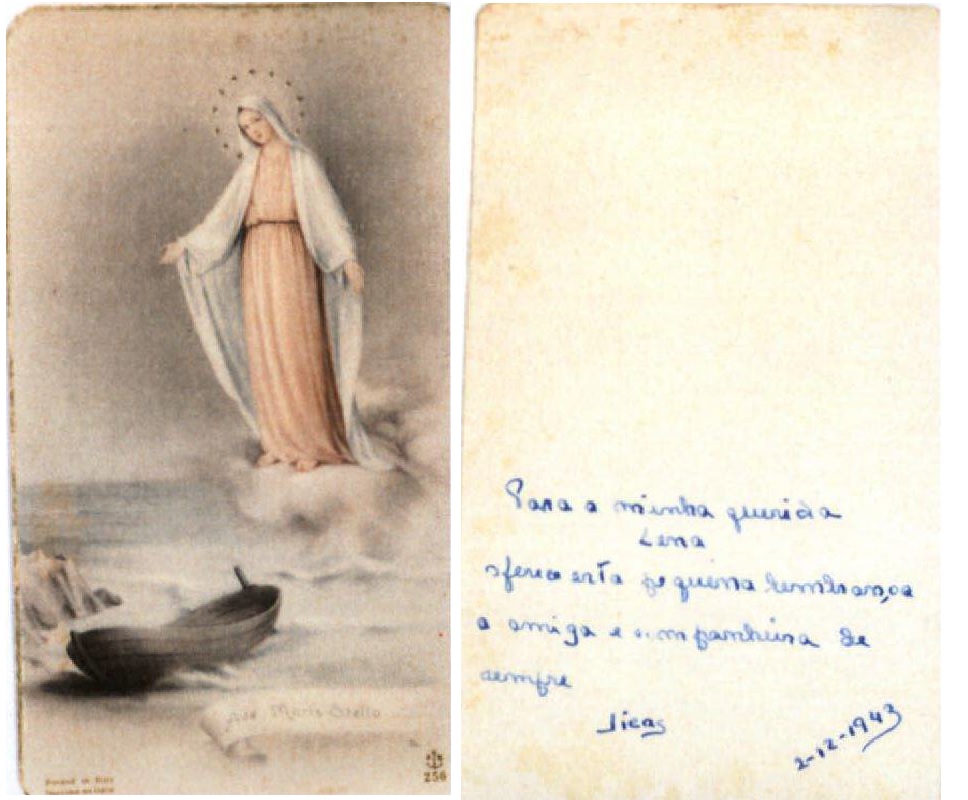 Maris Stella
256
Para a minha querida
Lena
oferece esta pequena lembrança
a amiga e companheira de
sempre
2-12-1943